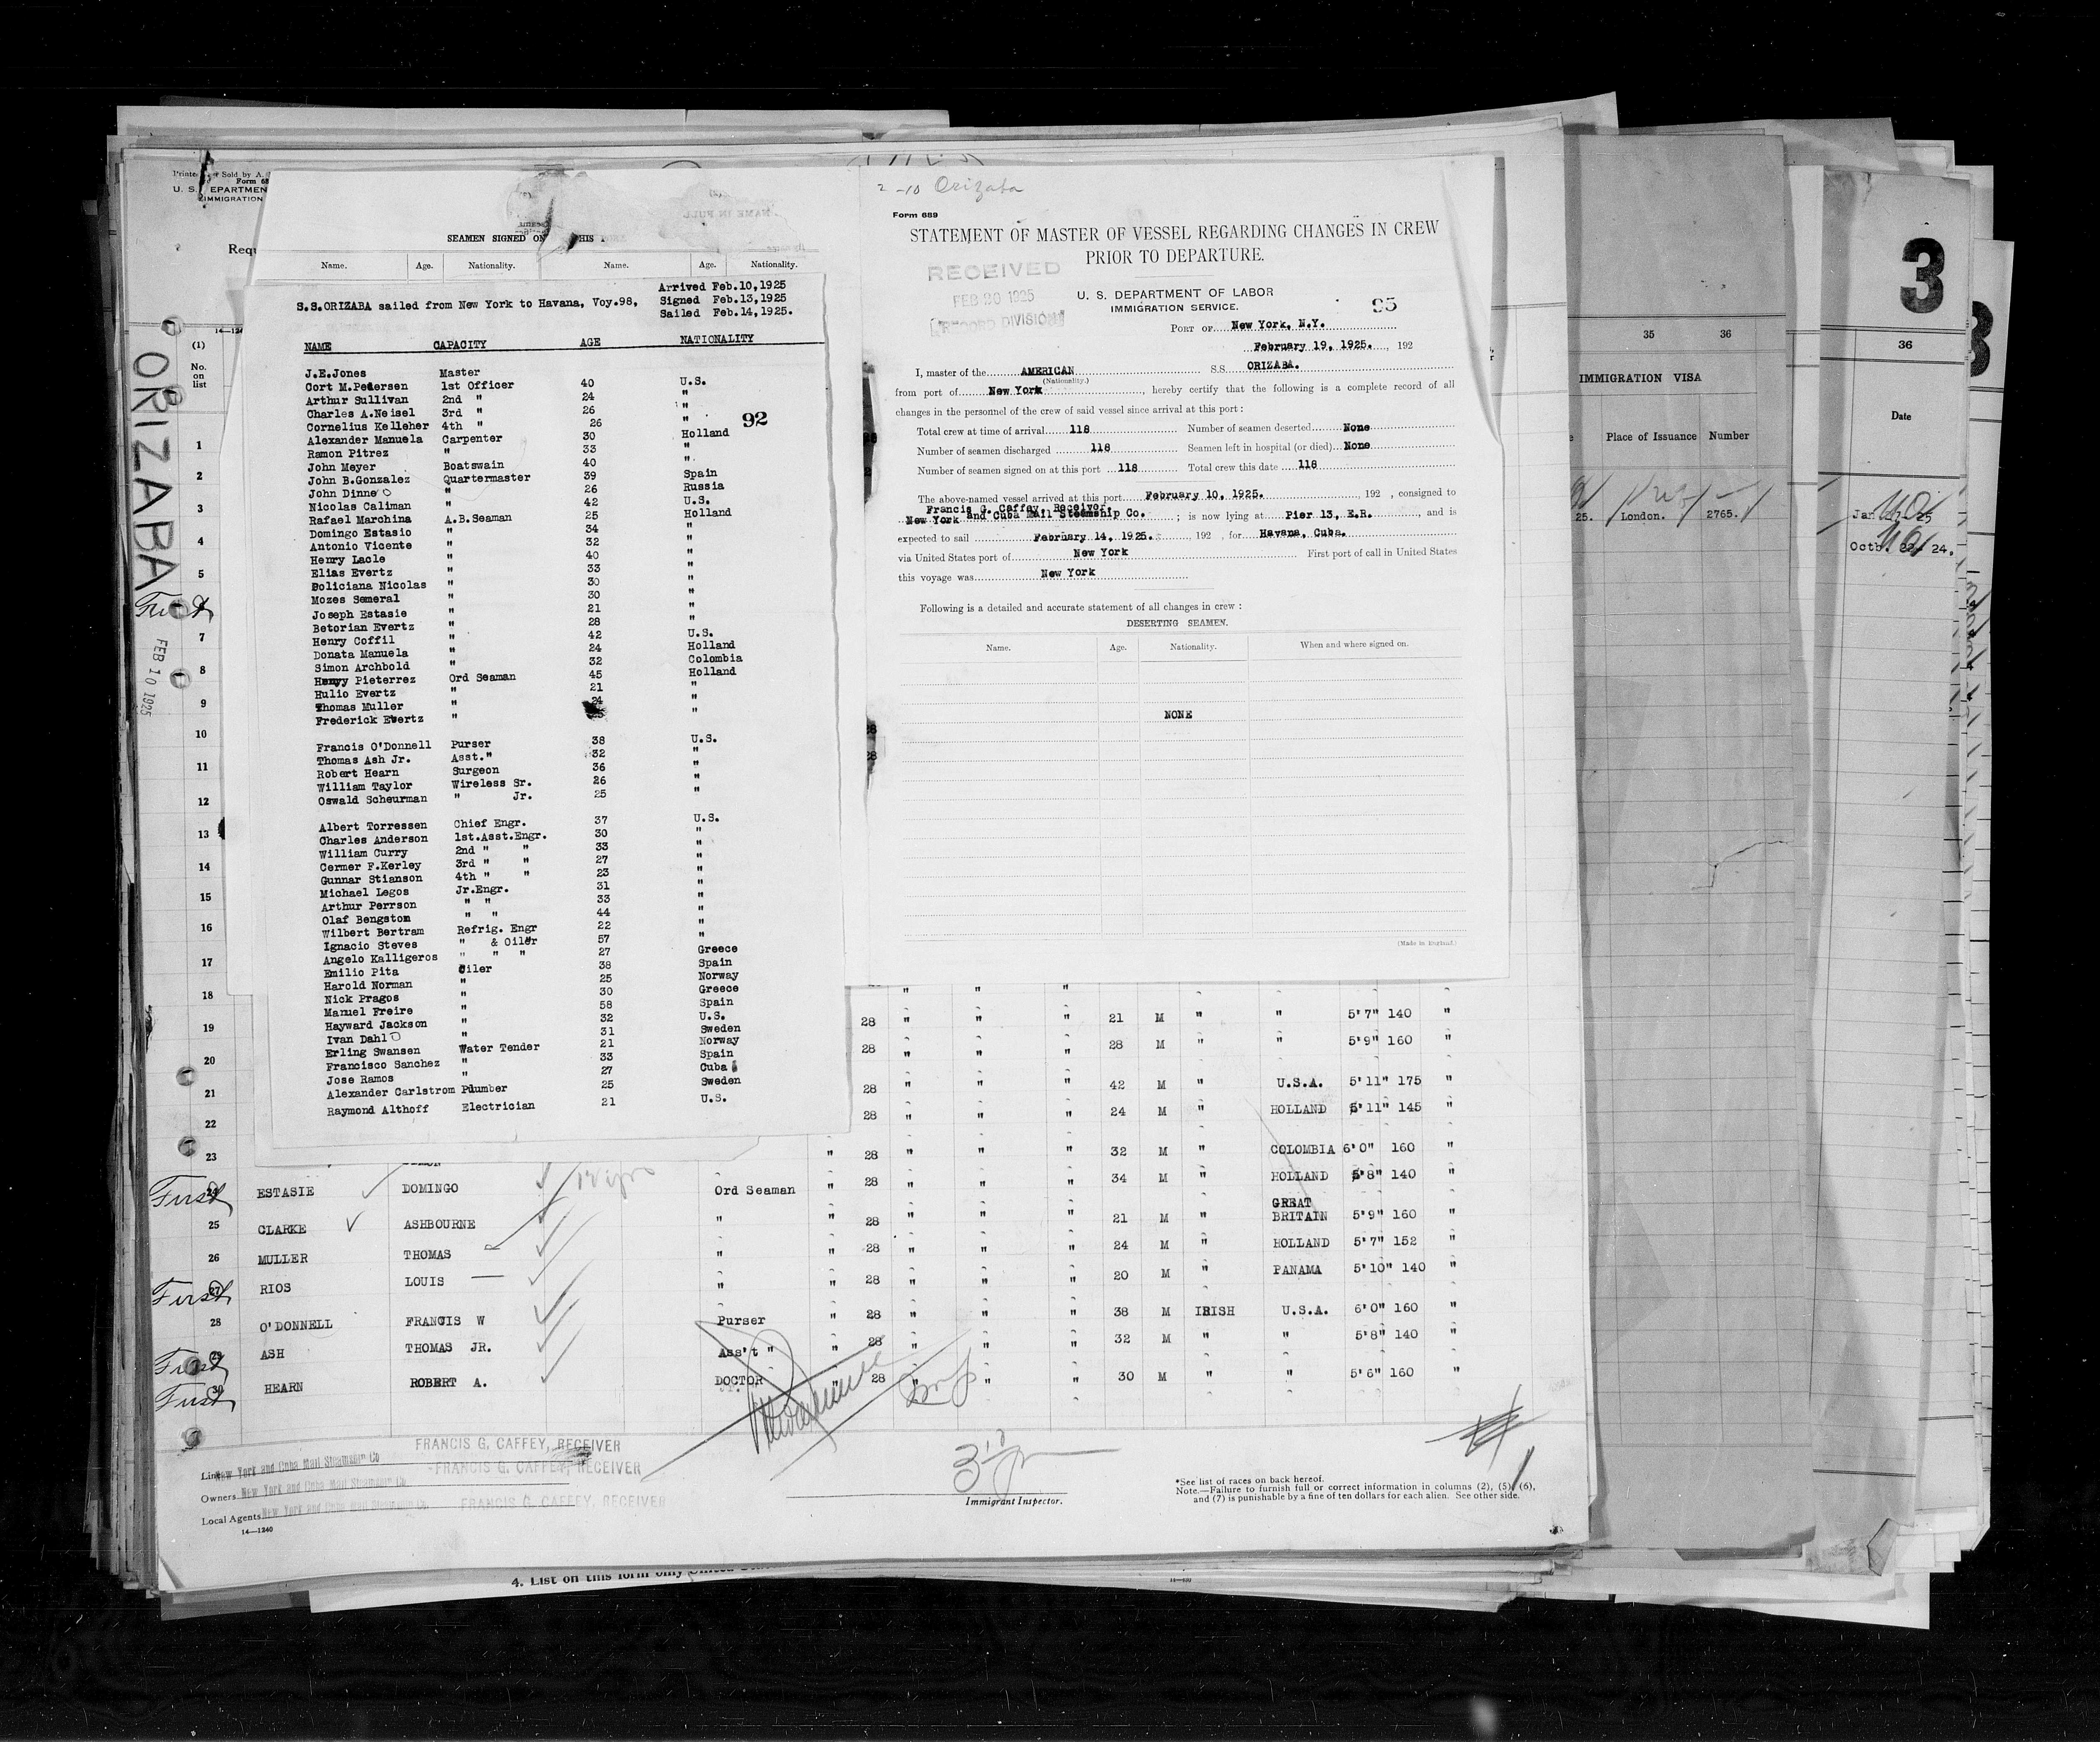 Form 68
U. S. DEPARTMEN
IMMIGRATION
Requ
14—124
(1)
No.
on
list
ORIZABA
FEB 10 1925
SEAMEN SIGNED ON THIS
Name. Age. Nationality. Name. Age. Nationality.
S.S.ORIZABA sailed from New York to Havana, Voy.98,
Arrived Feb.10,1925
Signed Feb.13,1925
Sailed Feb.14,1925.
NAME CAPACITY AGE NATIONALITY
J.E.Jones Master
Cort M.Pedersen 1st Officer 40 U.S.
Arthur Sullivan 2nd " 24 "
Charles A.Neisel 3rd " 26 "
Cornelius Kelleher 4th " 26 "
92
Alexander Manuela Carpenter 30 Holland
Ramon Pitrez " 33 "
John Meyer Boatswain 40 "
John B.Gonzalez Quartermaster 39 Spain
John Dinne " 26 Russia
Nicolas Caliman " 42 U.S.
Rafael Marchina A.B.Seaman 25 Holland
Domingo Estasio " 34 "
Antonio Vicente " 32 "
Henry Lacle " 40 "
Elias Evertz " 33 "
Policiana Nicolas " 30 "
Mozes Semeral " 30 "
Joseph Estasie " 21 "
Betorian Evertz " 28 "
Henry Coffil " 42 U.S.
Donata Manuela " 24 Holland
Simon Archbold " 32 Colombia
Henry Pieterrez Ord Seaman 45 Holland
Hulio Evertz " 21 "
Thomas Muller " 24 "
Frederick Evertz " "
Francis O'Donnell Purser 38 U.S.
Thomas Ash Jr. Asst." 32 "
Robert Hearn Surgeon 36 "
William Taylor Wireless Sr. 26 "
Oswald Scheurman " Jr. 25 "
Albert Torressen Chief Engr. 37 U.S.
Charles Anderson 1st.Asst.Engr. 30 "
William Curry 2nd " " 33 "
Cermer F.Kerley 3rd " " 27 "
Gunnar Stianson 4th " " 23 "
Michael Legos Jr.Engr. 31 "
Arthur Perrson " " 33 "
Olaf Bengstom " " 44 "
Wilbert Bertram Refrig. Engr 22 "
Ignacio Steves " & Oiler 57 "
Angelo Kalligeros " " " 27 Greece
Emilio Pita Oiler 38 Spain
Harold Norman " 25 Norway
Nick Pragos " 30 Greece
Manuel Freire " 58 Spain
Hayward Jackson " 32 U.S.
Ivan Dahl " 31 Sweden
Erling Swansen Water Tender 21 Norway
Francisco Sanchez " 33 Spain
Jose Ramos " 27 Cuba
Alexander Carlstrom Plumber 25 Sweden
Raymond Althoff Electrician 21 U.S.
2-10 Orizaba
Form 689
STATEMENT OF MASTER OF VESSEL REGARDING CHANGES IN CREW
PRIOR TO DEPARTURE.
RECEIVED
FEB 20 1925
RECORD DIVISION
U. S. DEPARTMENT OF LABOR
IMMIGRATION SERVICE.
95
PORT OF New York, N.Y.
February 19, 1925., 192
I, master of the AMERICAN S.S. ORIZABA.
(Nationality.)
from port of New York, hereby certify that the following is a complete record of all
changes in the personnel of the crew of said vessel since arrival at this port:
Total crew at time of arrival 118 Number of seamen deserted None
Number of seamen discharged 118 Seamen left in hospital (or died) None
Number of seamen signed on at this port 118 Total crew this date 118
The above-named vessel arrived at this port February 10, 1925., 192 , consigned to
Francis G. Caffey, Receiver,
New York and Cuba Mail Steamship Co. ; is now lying at Pier 13, E.R., and is
expected to sail February 14, 1925., 192 , for Havana, Cuba.
via United States port of New York First port of call in United States
this voyage was New York
Following is a detailed and accurate statement of all changes in crew:
DESERTING SEAMEN.
Name. Age. Nationality. When and where signed on.
NONE
(Made in England.)
1
2
3
4
5
First
7
8
9
10
11
12
13
14
15
16
17
18
19
20
21
22
23
28 " " " 21 M " " 5'7" 140 "
28 " " " 28 M " " 5'9" 160 "
28 " " " 42 M " U.S.A. 5'11" 175 "
28 " " " 24 M " HOLLAND 5'11" 145 "
" 28 " " " 32 M " COLOMBIA 6'0" 160 "
First 24 ESTASIE DOMINGO Ord Seaman " 28 " " " 34 M " HOLLAND 5'8" 140 "
25 CLARKE ASHBOURNE " " 28 " " " 21 M " GREAT BRITAIN 5'9" 160 "
26 MULLER THOMAS " " 28 " " " 24 M " HOLLAND 5'7" 152 "
First 27 RIOS LOUIS " " 28 " " " 20 M " PANAMA 5'10" 140 "
28 O'DONNELL FRANCIS W Purser " 28 " " " 38 M IRISH U.S.A. 6'0" 160 "
First 29 ASH THOMAS JR. Ass't " " 28 " " " 32 M " " 5'8" 140 "
First 30 HEARN ROBERT A. DOCTOR " 28 " " " 30 M " " 5'6" 160 "
Line New York and Cuba Mail Steamship Co FRANCIS G. CAFFEY, RECEIVER
Owners New York and Cuba Mail Steamship Co. FRANCIS G. CAFFEY, RECEIVER
Local Agents New York and Cuba Mail Steamship Co. FRANCIS G. CAFFEY, RECEIVER
14—1240
Immigrant Inspector.
*See list of races on back hereof.
Note.—Failure to furnish full or correct information in columns (2), (5), (6),
and (7) is punishable by a fine of ten dollars for each alien. See other side.
4. List on this form only
35 36
IMMIGRATION VISA
Place of Issuance Number
25. London. 2765.
3
36
Date
Jan 27-25
Octb. 22 24.
3